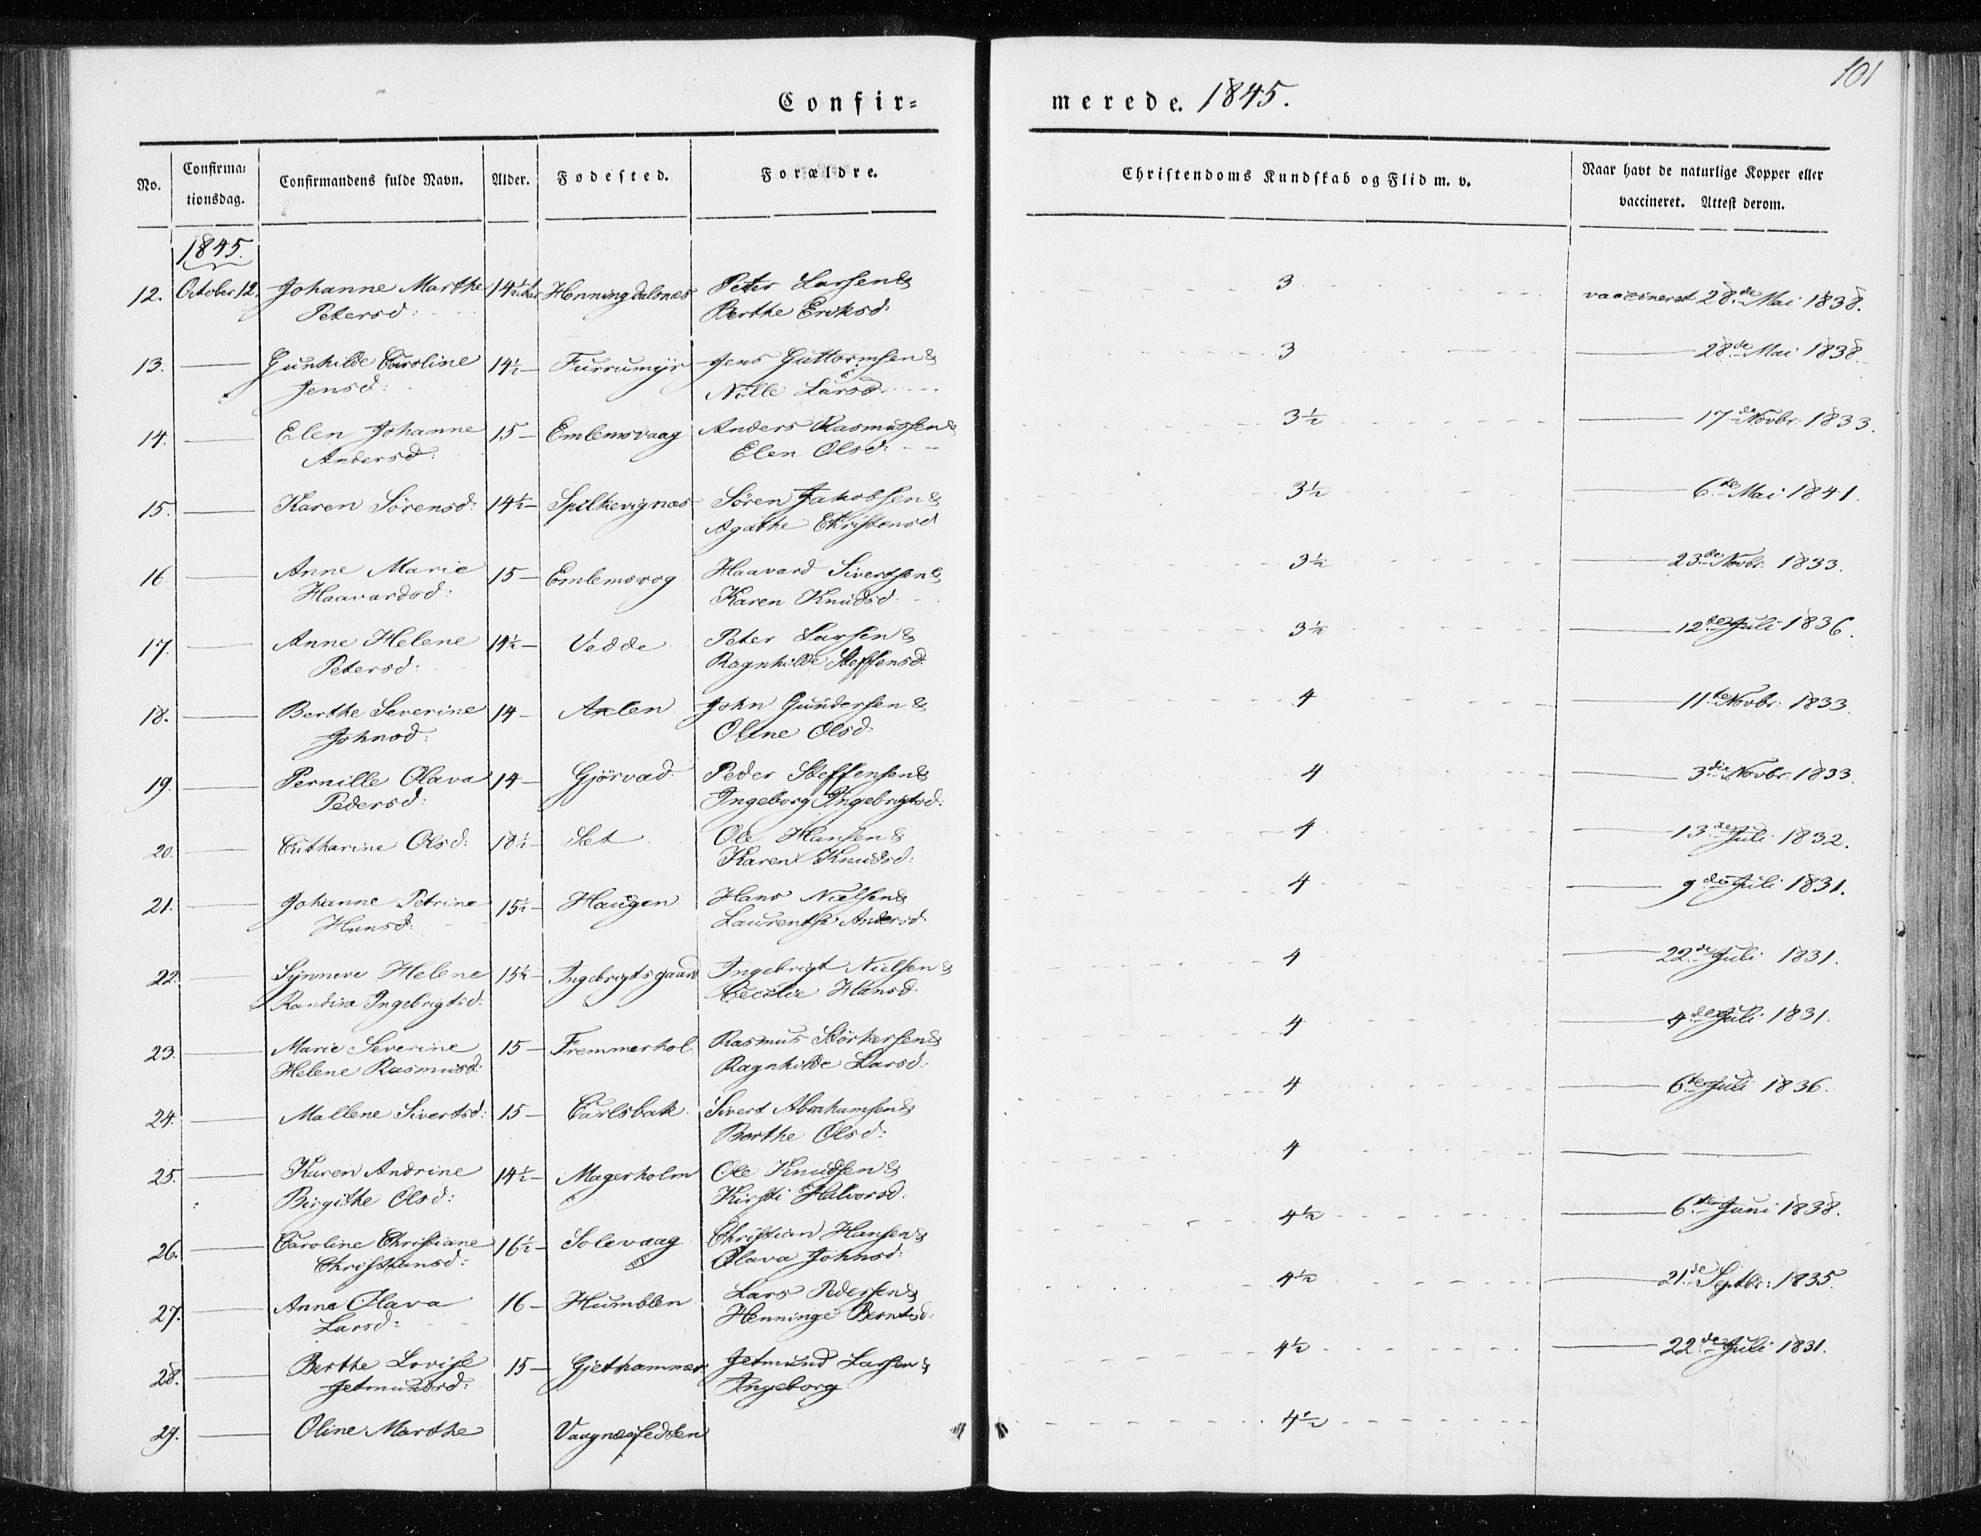 Confir=
merede. 1845.
101
No.
Confirma=
tionsdag.
Confirmandens fulde Navn.
Alder.
Fødested.
Forældre.
Christendoms Kundskab og Flid m. v.
Naar havt de naturlige Kopper eller
vaccineret. Attest derom.
1845.
12. October 12. Johanne Marthe 14½ Henningdalsnes Peter Larsen & 3 vaccineret 28de Mai 1838.
Petersd: Berthe Eriksd:
13. Gunhilde Caroline 14½ Furrumyr Jens Guttormsen & 3 28de Mai 1838.
Jensd: Nille Larsd:
14. Elen Johanne 15 Emlemsvaag Anders Rasmussen & 3½ 17de Novbr: 1833.
Andersd: Elen Olsd:
15. Karen Sörensd: 14½ Spilkevignæs Sören Jakobsen & 3½ 6te Mai 1841.
Agathe Christensd
16. Anne Marie 15 Emlemsvog Haavard Sivertsen & 3½ 23de Novbr: 1833.
Haavardsd: Karen Knudsd:
17. Anne Helene 14½ Vedde Peter Larsen & 3½ 12te Juli 1836.
Petersd: Ragnhilde Steffensd:
18. Berthe Severine 14 Axlen John Gundersen & 4 11te Novbr: 1833.
Johnsd: Oline Olsd:
19. Pernille Olava 14 Gjörvad Peder Steffensen & 4 3die Novbr: 1833.
Pedersd: Ingeborg Ingebrigtsd:
20. Catharine Olsd: 18½ Set Ole Hansen & 4 13de Juli 1832.
Karen Knudsd:
21. Johanne Petrine 15½ Haugen Hans Nielsen & 4 9de Juli 1831.
Hansd: Laurentse Andersd:
22. Synneve Helene 15½ Ingebrigtsgaard Ingebrigt Nielsen & 4 22de Juli 1831.
Randine Ingebrigtsd: Cecilie Hansd:
23. Marie Severine 15 Fremmerhol Rasmus Störkersen & 4 4de Juli 1831.
Helene Rasmusd: Ragnhilde Larsd:
24. Mallene Sivertsd: 15 Carlsbak Sivert Abrahamsen & 4 6te Juli 1836.
Berthe Olsd:
25. Karen Andrine 14½ Magerholm Ole Knudsen & 4
Birgithe Olsd: Kirsti Halvorsd:
26. Caroline Christiane 16½ Solevaag Christian Hansen & 4½ 6te Juni 1838.
Christiansd: Olava Johnsd:
27. Anne Olava 16 Humblen Lars Pedersen & 4½ 21de Septbr: 1835.
Larsd: Henninge Berntsd:
28. Berthe Lovise 15 Gjethammer Jetmund Larsen & 4½ 22de Juli 1831.
Jetmundsd: Ingeborg
29. Oline Marthe Vaagnes 4½